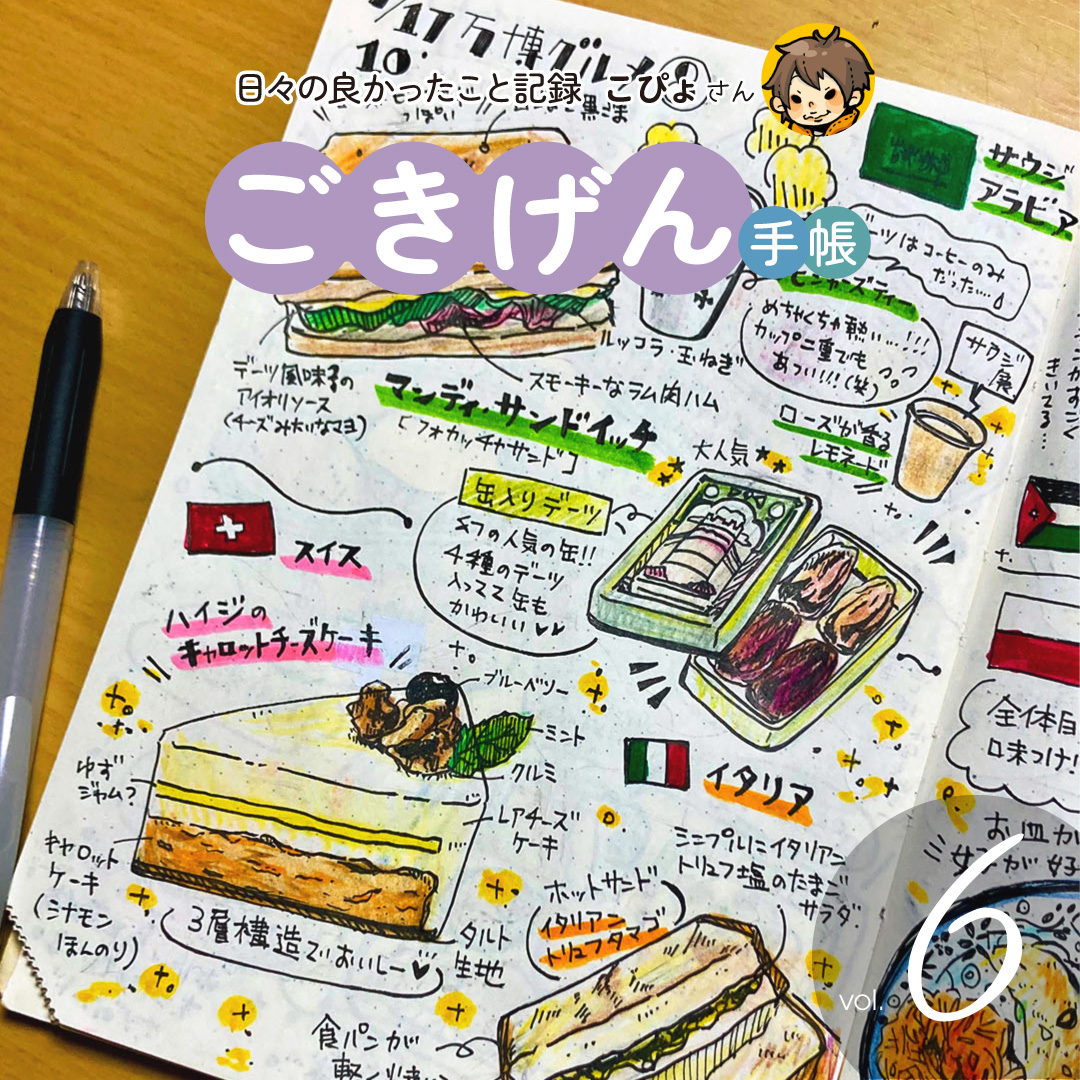 17 万博グルメ①
10
日々の良かったこと記録 こぴょさん
黒ごま
っぽい
ごきげん手帳
サウジ
アラビア
デーツはコーヒーのみ
だった…
ジンジャーズティー
めちゃくちゃ熱い…!!!
カップ二重でも
あつい!!!(笑)
サウジ
展
ローズが香る
レモネード
ルッコラ・玉ねぎ
スモーキーなラム肉ハム
デーツ風味の
アイオリソース
(チーズみたいなマヨ)
マンディ・サンドイッチ
「フォカッチャサンド」
大人気
缶入りデーツ
4種のデーツ
入ってて缶も
かわいい♥♥
スイス
ハイジの
キャロットチーズケーキ
ブルーベリー
ミント
クルミ
レアチーズ
ケーキ
ゆず
ジャム?
キャロット
ケーキ
(シナモン
ほんのり)
3層構造でおいしー♥
タルト
生地
イタリア
シンプルにイタリアン
トリュフ塩のたまご
サラダ
ホットサンド
イタリアン
トリュフタマゴ
食パンが
きいてる…
全体目
口味つけ!
お皿が
女子が好
vol. 6